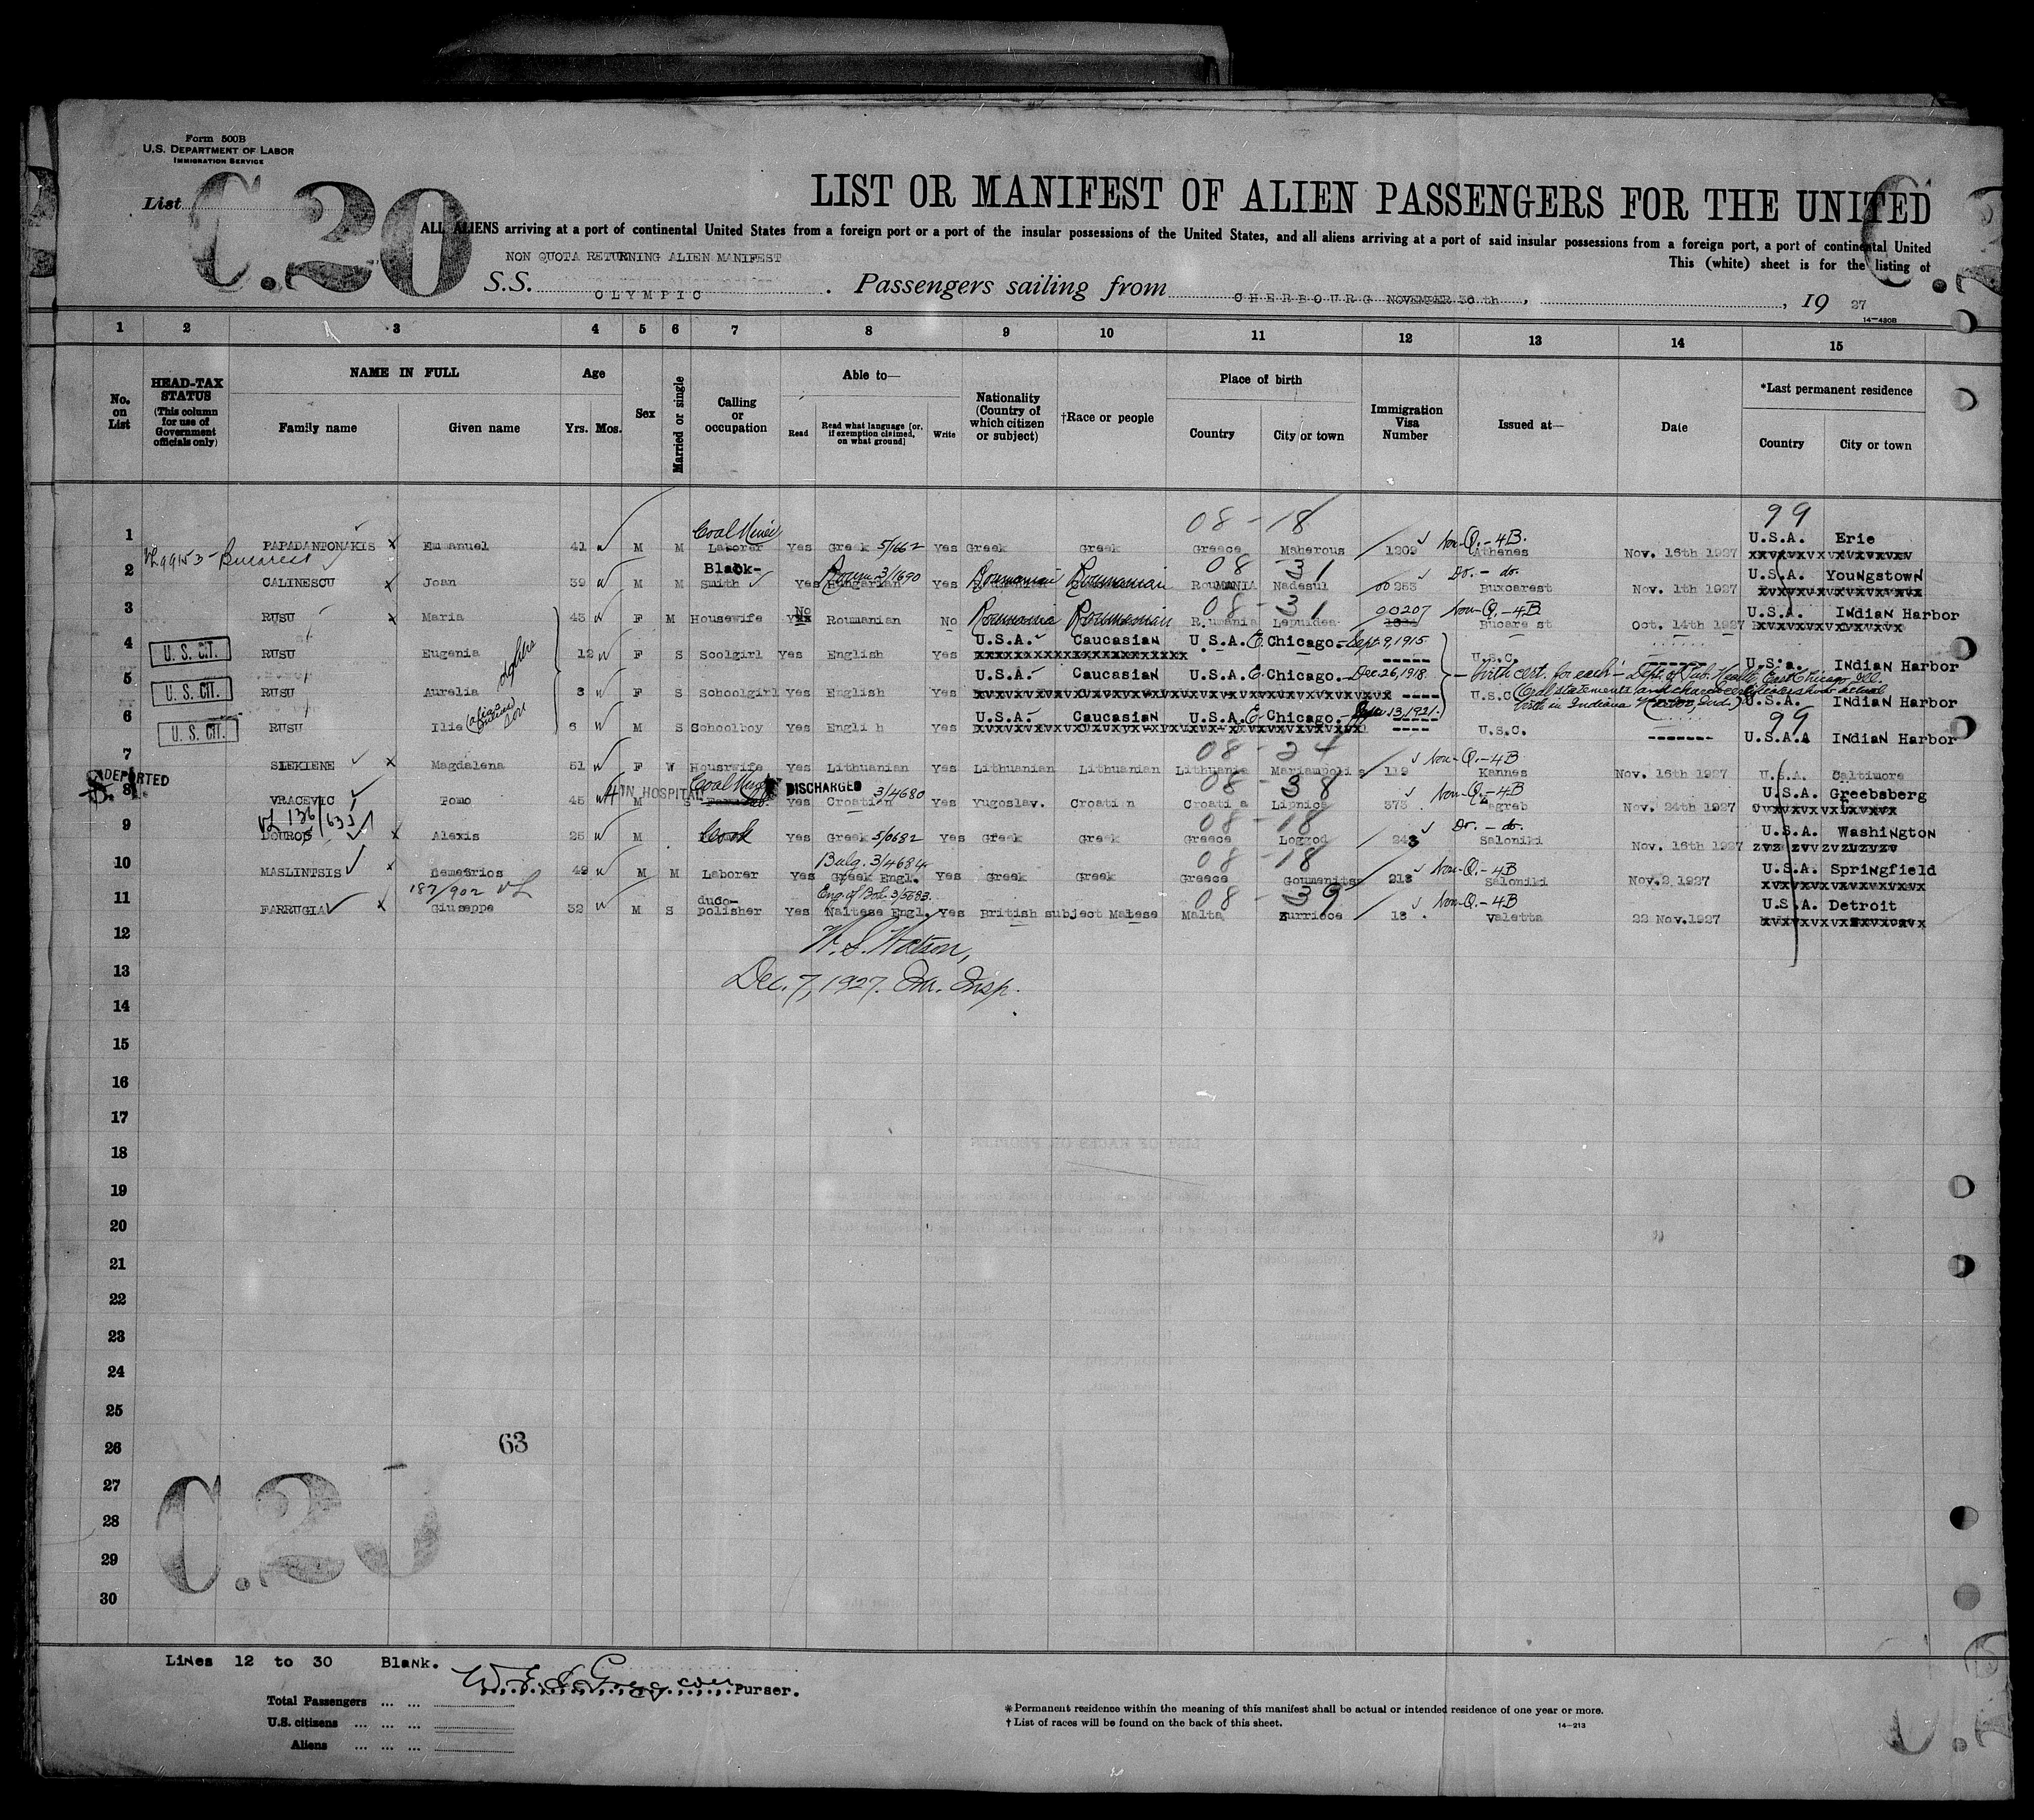 Form 500B
U.S. DEPARTMENT OF LABOR
IMMIGRATION SERVICE
List C.20
LIST OR MANIFEST OF ALIEN PASSENGERS FOR THE UNITED
ALL ALIENS arriving at a port of continental United States from a foreign port or a port of the insular possessions of the United States, and all aliens arriving at a port of said insular possessions from a foreign port, a port of continental United
NON QUOTA RETURNING ALIEN MANIFEST
This (white) sheet is for the listing of
S.S. OLYMPIC. Passengers sailing from CHERBOURG NOVEMBER 30th, 19 27
14-430B
1 2 3 4 5 6 7 8 9 10 11 12 13 14 15
No. on List
HEAD-TAX STATUS (This column for use of Government officials only)
NAME IN FULL
Family name
Given name
Age
Yrs. Mos.
Sex
Married or single
Calling or occupation
Able to—
Read
Read what language [or, if exemption claimed, on what ground]
Write
Nationality (Country of which citizen or subject)
†Race or people
Place of birth
Country
City or town
Immigration Visa Number
Issued at—
Date
*Last permanent residence
Country
City or town
08-18 99
1 PAPADANTONAKIS x Emmanuel 41 M M Coal Miner Laborer Yes Greek 5/1662 Yes Greek Greek Greece Maherous 1209 Non-Q.-4B. Athenes Nov. 16th 1927 U.S.A. Erie
Bucarest
08-31
2 CALINESCU x Joan 39 M M Black-smith Yes Roum 3/1690 Yes Roumanian Roumanian RouMANIA Nadesul 00253 Do. - do. Buxcarest Nov. 1th 1927 U.S.A. Youngstown
08-31
3 RUSU x Maria 43 F M Housewife No Roumanian No Roumania Roumanian Roumania Lepuidea 00207 Non-Q.-4B Bucare st Oct. 14th 1927 U.S.A. Indian Harbor
4 U. S. CIT. RUSU Eugenia 12 F S Scolgirl Yes English Yes U.S.A. Caucasian U.S.A. E. Chicago. - Sept. 9, 1915 ----- U.S.C. U.S.a. Indian Harbor
5 U. S. CIT. RUSU Aurelia 8 F S Schoolgirl Yes English Yes U.S.A. Caucasian U.S.A. E. Chicago. - Dec. 26, 1918. ----- U.S.C. U.S.A. Indian Harbor
birth cert. for each - Dept. of Pub. Health, East Chicago Ill.
6 U. S. CIT. RUSU Ilie (alias son 6 M S Schoolboy Yes Engli h Yes U.S.A. Caucasian U.S.A. E. Chicago. 13, 1921. ---- U.S.C. ------- U.S.A. Indian Harbor
99
7 SLEKIENE x Magdalena 51 F W Housrwife Yes Lithuanian Yes Lithuanian Lithuania Lithuania Mariampolis 119 Non-Q.-4B Kannes Nov. 16th 1927 U.S.A. Baltimore
DEPORTED
08-38
8 VRACEVIC Pomo 45 IN HOSPITAL M S DISCHARGED Yes Croatien 3/4680 Yes Yugoslav. Croatian Croatia Lipnica 373 Non-Q.-4B Zagreb Nov. 24th 1927 U.S.A. Greebsberg
VL 136/635
08-18
9 DOUROS x Alexis 25 M Cook Yes Greek 5/0682 Yes Greek Greek Greece Loggod 243 Do. - do. Saloniki Nov. 16th 1927 U.S.A. Washington
08-18
10 MASLINTSIS x Demetrios 49 M M Laborer Yes Bulg. 3/4684 Greek Engl. Yes Greek Greek Greece Goumenitsa 213 Non-Q.-4B Saloniki Nov. 2 1927 U.S.A. Springfield
187/902 VL
08-39
11 FARRUGIA x Giuseppe 32 M S duco-polisher Yes Maltese Engl. Yes British subject Matese Malta Zurriece 13 Non-Q.-4B Valetta 22 Nov. 1927 U.S.A. Detroit
12 W. S. Watson,
13 Dec. 7, 1927. Im. Insp.
14
15
16
17
18
19
20
21
22
23
24
25
26 63
27
28
29
30
C.20
Lines 12 to 30 Blank.
Purser.
Total Passengers
U.S. citizens
Aliens
* Permanent residence within the meaning of this manifest shall be actual or intended residence of one year or more.
† List of races will be found on the back of this sheet.
14-213